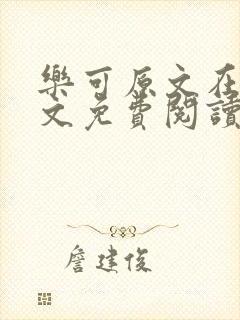 樂可原文在
文免費閱讀
詹建俊